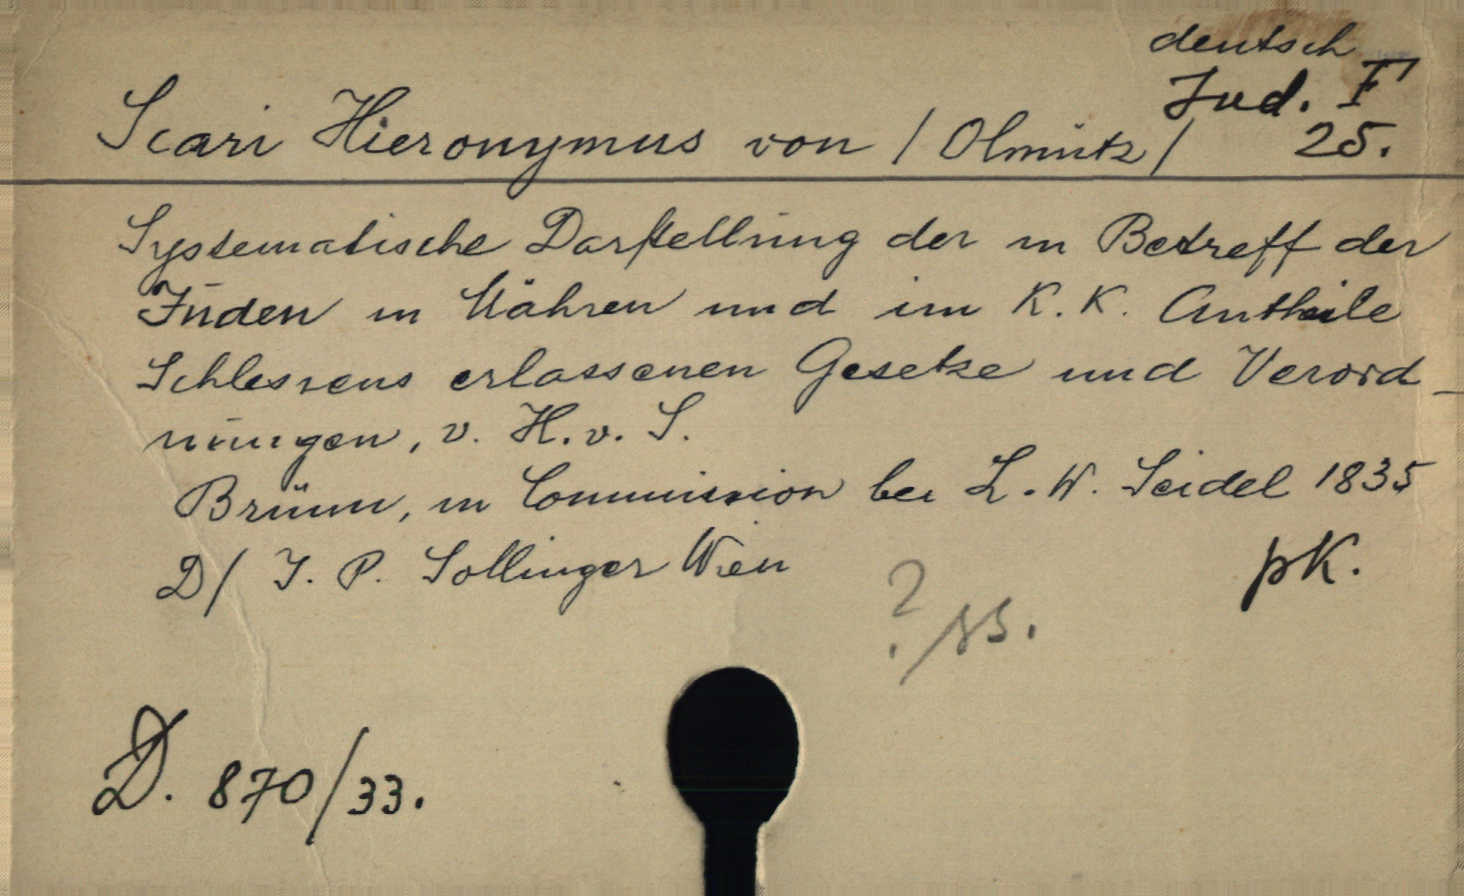 deutsch
Jud. F
25.
Scari Hieronymus von / Olmütz /
Systematische Darstellung der in Betreff der
Juden in Mähren und im K. K. Antheile
Schlesiens erlassenen Gesetze und Verord-
nungen, v. H. v. S.
Brünn, in Commission bei L. W. Seidel 1835
D/ J. P. Sollinger Wien
pK.
?
D. 870/33.